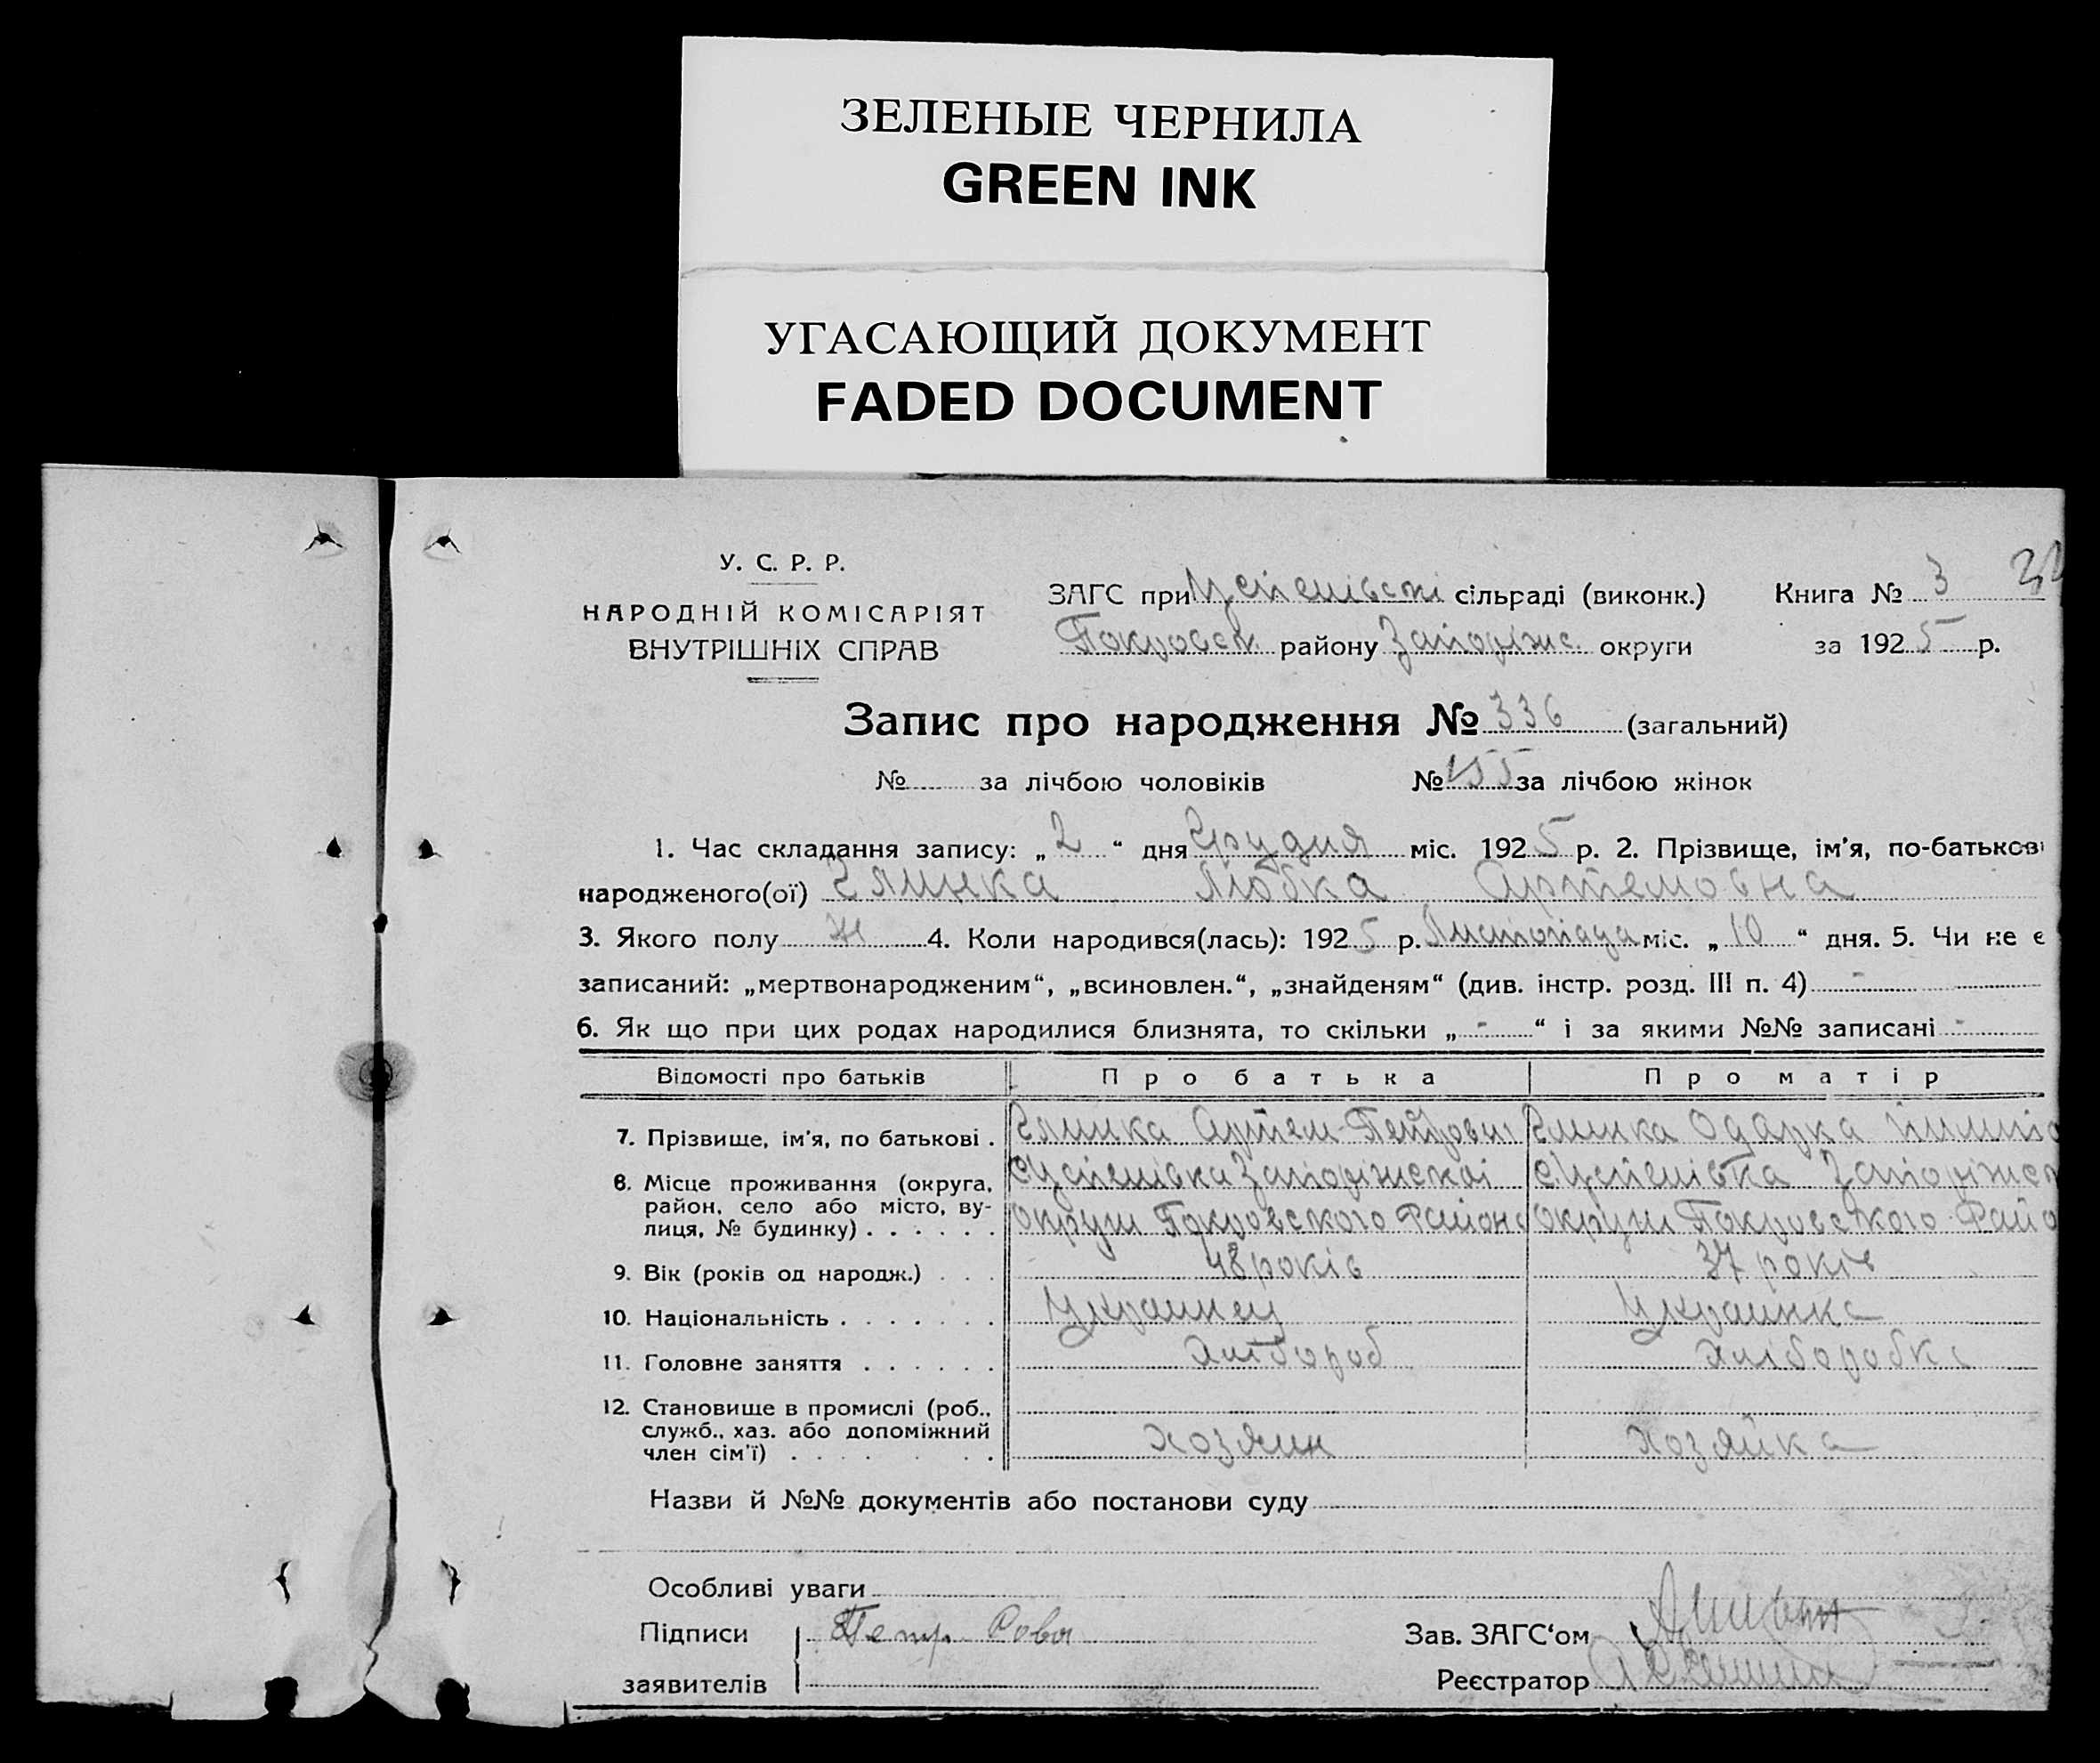 ЗЕЛЕНЫЕ ЧЕРНИЛА
GREEN INK
УГАСАЮЩИЙ ДОКУМЕНТ
FADED DOCUMENT
У. С. Р. Р.
НАРОДНІЙ КОМІСАРІЯТ
ВНУТРІШНІХ СПРАВ
ЗАГС при Успенівскі сільраді (виконк.) Книга № 3
Покровск. району Запоріжс. округи за 1925 р.
Запис про народження № 336 (загальний)
№ за лічбою чоловіків № 155 за лічбою жінок
1. Час складання запису: „2“ дня Грудня міс. 1925 р. 2. Прізвище, ім'я, по-батькові
народженого(ої) Глинка Любка Артемовна
3. Якого полу Ж 4. Коли народився(лась): 1925 р. Листопада міс. „10“ дня. 5. Чи не є
записаний: „мертвонародженим“, „всиновлен.“, „знайденям“ (див. інстр. розд. III п. 4) -
6. Як що при цих родах народилися близнята, то скільки „-“ і за якими №№ записані -
Відомості про батьків Про батька Про матір
7. Прізвище, ім'я, по батькові . Глинка Артем Петрович Глинка Одарка
8. Місце проживання (округа, район, село або місто, вулиця, № будинку) . . . . . . с. Успенівка Запоріжскої с. Успенівка Запоріжск
округи Покровского Району округи Покровского Райо
9. Вік (років од народж.) . . . 48 років 37 років
10. Національність . . . . . . . Украинец Украинка
11. Головне заняття . . . . . . Хлібороб Хліборобка
12. Становище в промислі (роб., служб., хаз. або допоміжний член сім'ї) . . . . . . . хозяин хозяйка
Назви й №№ документів або постанови суду
Особливі уваги
Підписи
заявителів
Зав. ЗАГС'ом
Реєстратор